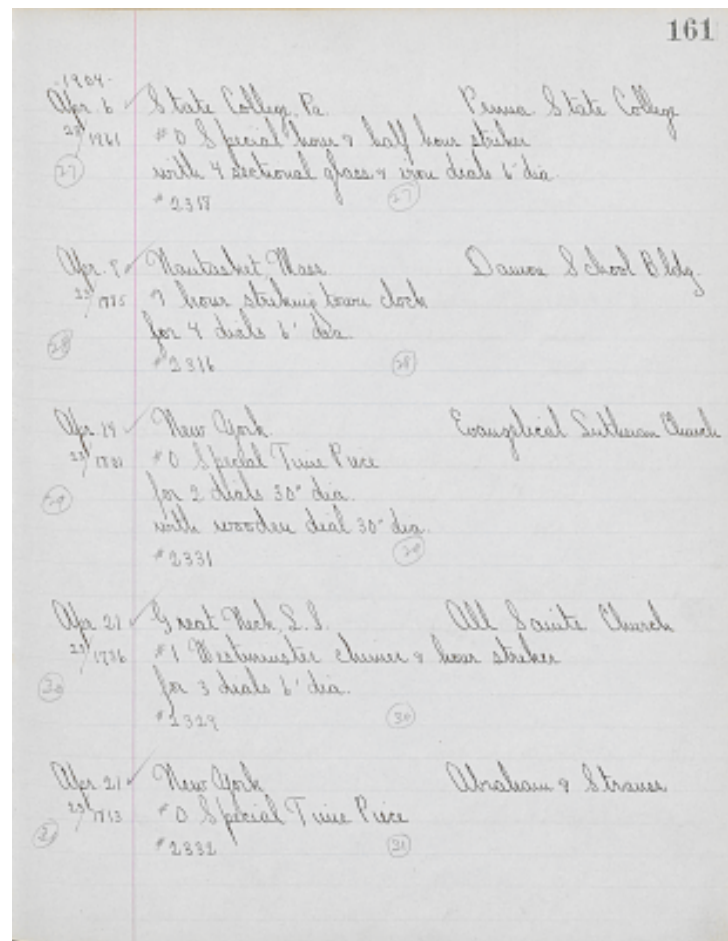 161
1904.
Apr. 6 ✓ State College, Pa. Penna State College
#0 Special hour & half hour striker
with 4 sectional glass & iron dials 6' dia.
27 27
Apr. 9 ✓ Nantasket, Mass. Damon School Bldg.
hour striking tower clock
for 4 dials 6' dia.
28 #2316 28
Apr. 19 ✓ New York. Evangelical Lutheran Church
#0 Special Time Piece
for 2 dials 30" dia.
29 with wooden dial 30" dia.
#2331 29
Apr. 21 ✓ Great Neck, L.I. All Saints Church
#1 Westminster chimer & hour striker
30 for 3 dials 6' dia.
#2329 30
Apr. 21 ✓ New York Abraham & Straus
#0 Special Time Piece
31 #2332 31